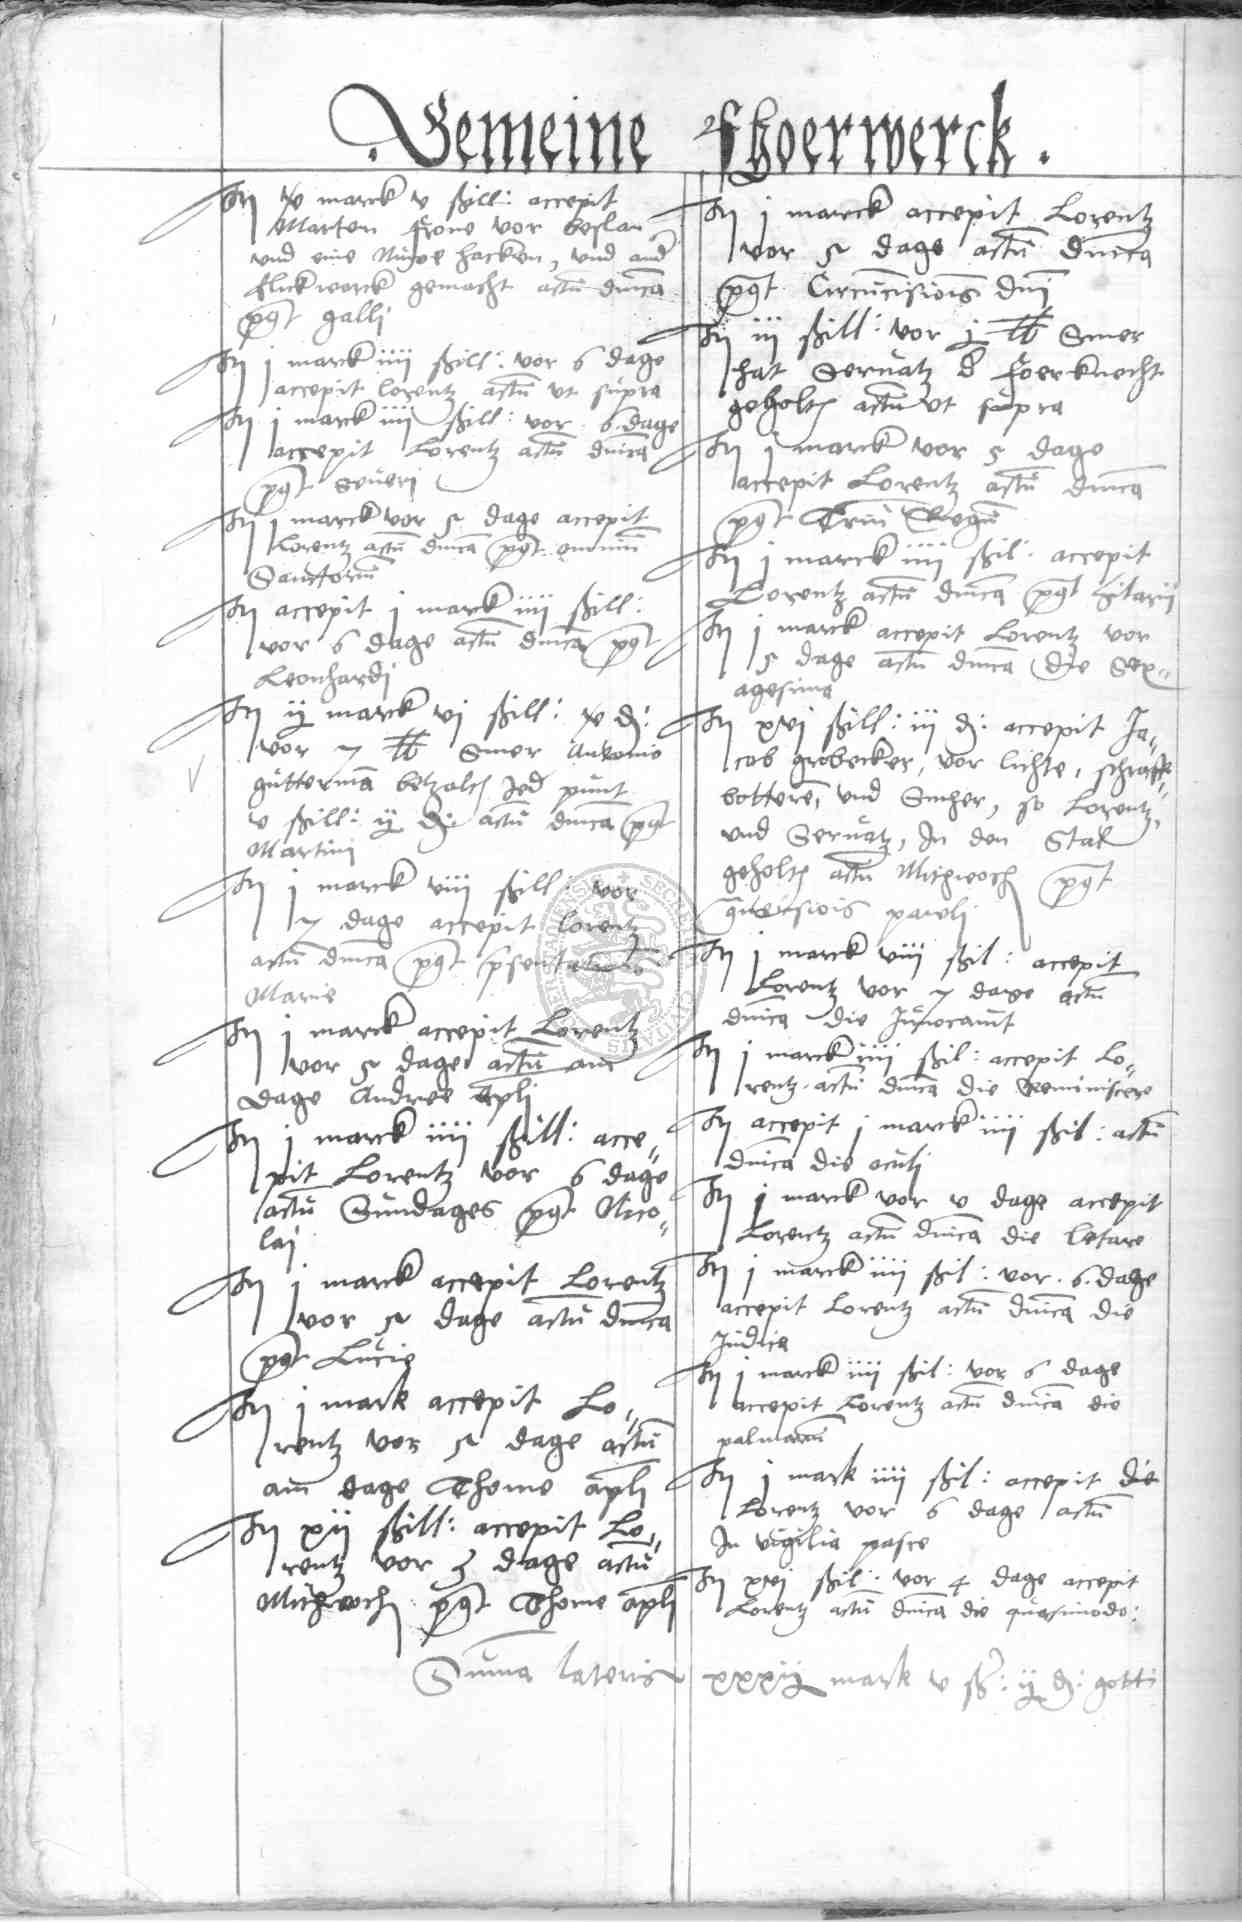 Gemeine Fhoerwerck.
It xv marck v ßill: accepit
Marten Frone vor beslan
vnd eine Nuwe hacken, vnd ander
flickwerck gemacht actū dnica
post galli
It j marck iiij ßill: vor 6 dage
accepit lorentz actū vt supra
It j marck iiij ßill: vor 6 dage
accepit Lorentz actū dnica
post Seueri
It j marck vor 5 dage accepit
Lorentz actū dnica post omniū
Sanctorū
It accepit j marck iiij ßill:
vor 6 dage actū dnica post
Leonhardi
It ij marck vj ßill: xv d:
vor 7 lb Smer Antonio
gutterma betzalt Jed punt
v ßill: ij d: actū dnica post
Martini
It j marck viij ßill: vor
7 dage accepit lorentz
actū dnica post psentationis
Marie
It j marck accepit Lorentz
vor 5 dage actū am
dage Andree Apli
It j marck iiij ßill: acce„
pit Lorentz vor 6 dage
actū Sundages post Nico„
lai
It j marck accepit Lorentz
vor 5 dage actū dnica
post Lucie
It j mark accepit Lo„
rentz vor 5 dage actū
am dage Thome apli
It xij ßill: accepit Lo„
rentz vor 3 dage actū
Mitzwoch post Thome apli
It j marck accepit Lorentz
vor 5 dage actū dnica
post Circūcisiois dni
It iij ßill: vor j lb Smer
hat Seruatz d foerknecht
geholt actū vt supra
It j marck vor 5 dage
accepit Lorentz actū dnica
post Triū Regū
It j marck iiij ßil: accepit
Lorentz actū dnica post hilarij
It j marck accepit Lorentz vor
5 dage actū dnica die Sex„
agesima
It xvj ßill: iij d: accepit Ja„
cob grobecker, vor lichte,
botteren, vnd Smher, so Lorentz,
vnd Seruatz, In den Stal
geholt actū Mitzwoch post
conuersiois pauli
It j marck viij ßil: accepit
Lorentz vor 7 dage actū
dnica die Inuocauit
It j marck iiij ßil: accepit Lo„
rentz actū dnica die Reminiscere
It accepit j marck iiij ßil: actū
dnica die oculi
It j marck vor v dage accepit
Lorentz actū dnica die letare
It j marck iiij ßil: vor .6. dage
accepit Lorentz actū dnica die
Judica
It j marck iiij ßil: vor 6 dage
accepit Lorentz actū dnica die
palmarū
It j mark iiij ßil: accepit die
Lorentz vor 6 dage actū
In vigilia pasce
It xvj ßil: vor 4 dage accepit
Lorentz actū dnica die quasimodo:
Suma lateris xxxij mark v ß: ij d: gotti